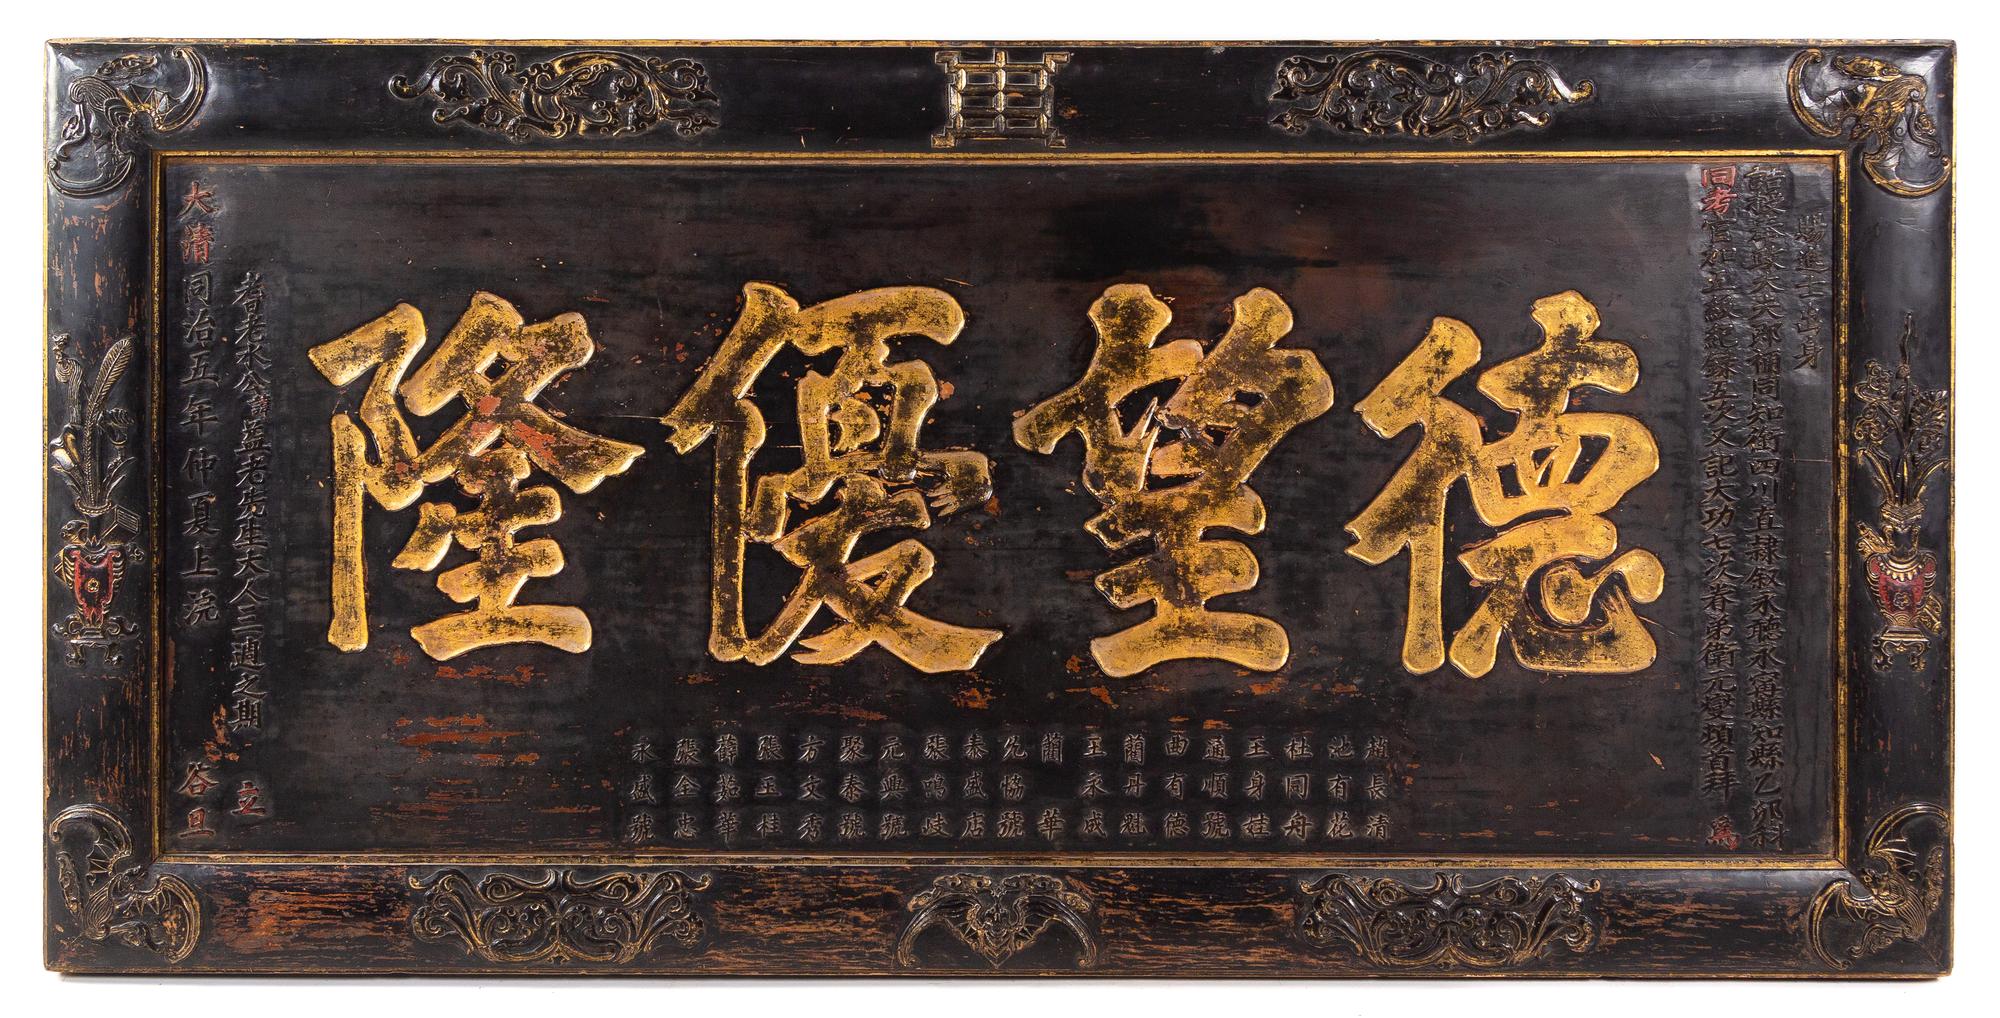 賜進士出身
誥授奉政大夫即補同知銜四川直隸敘永廳永寗縣知縣乙卯科
同考官加五級紀錄五次又記大功七次眷弟衛元燮頓首拜 為
德望優隆
趙長清
池有花
杜同舟
王身桂
通順號
曲有德
藺丹魁
王永成
藺 華
允協號
泰盛店
張鳴岐
元興號
聚泰號
方文秀
張玉桂
藺茹華
張全忠
永盛號
耆老水公諱益老先生大人三週之期 立
大清同治五年仲夏上浣 谷旦